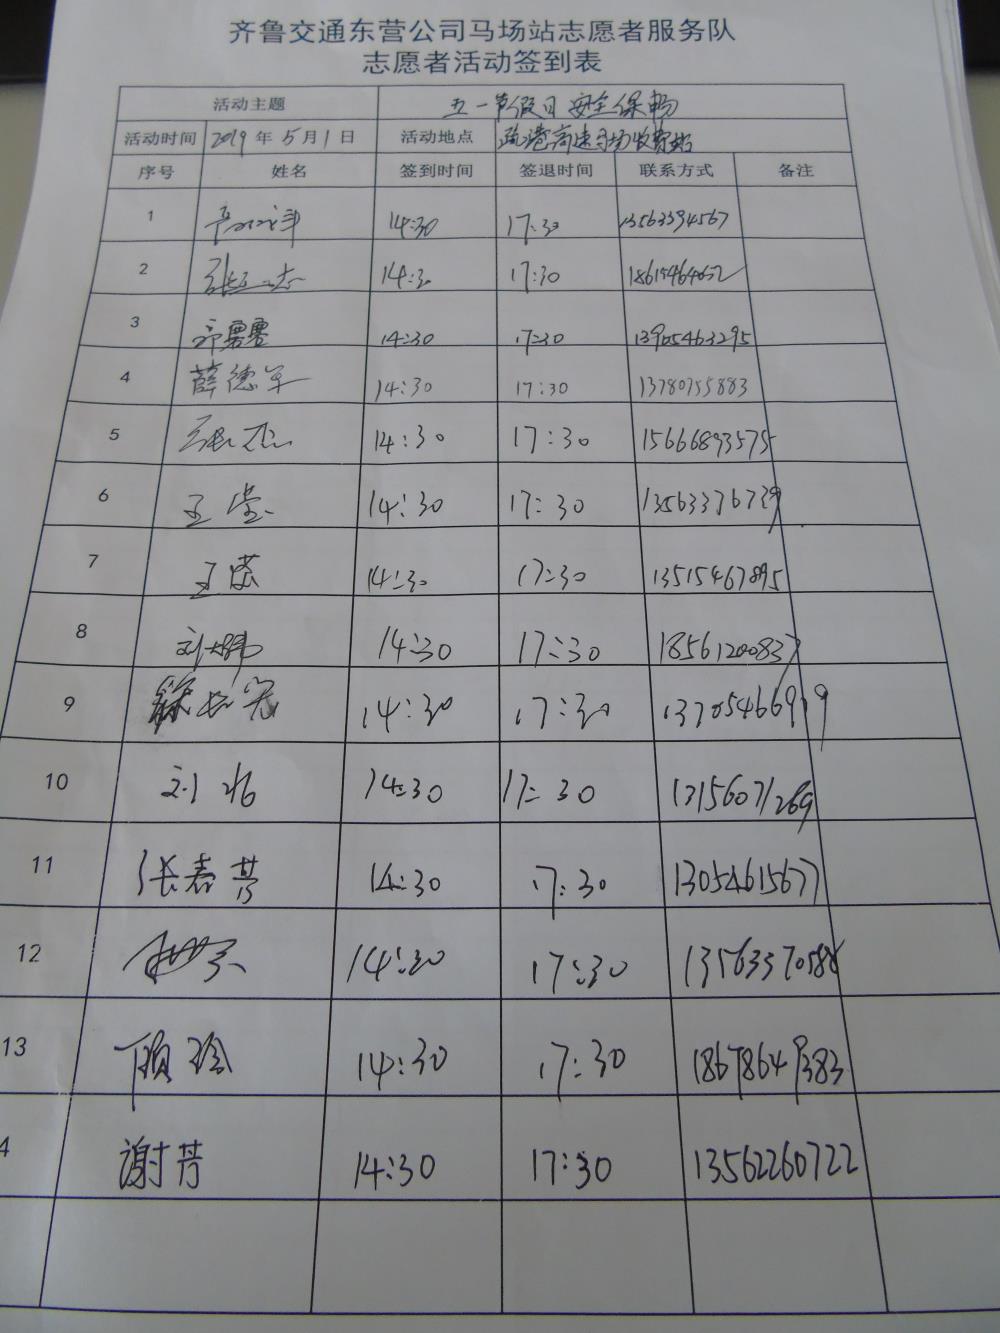 齐鲁交通东营公司马场站志愿者服务队
志愿者活动签到表
活动主题 五一节假日 安全保畅
活动时间 2019年5月1日 活动地点 疏港高速马场收费站
序号 姓名 签到时间 签退时间 联系方式 备注
1 14:30 17:30 13563394567
2 14:30 17:30
3 14:30 17:30 13905463295
4 薛德军 14:30 17:30 13780755883
5 张杰 14:30 17:30 15666893575
6 王莹 14:30 17:30 13563376739
7 王 14:30 17:30 13515467895
8 刘 14:30 17:30 18561200837
9 14:30 17:30 13705466919
10 刘 14:30 17:30 13156071269
11 张春芳 14:30 17:30 13054615677
12 14:30 17:30 13563370588
13 顾玲 14:30 17:30 18678649383
4 谢芳 14:30 17:30 13562260722